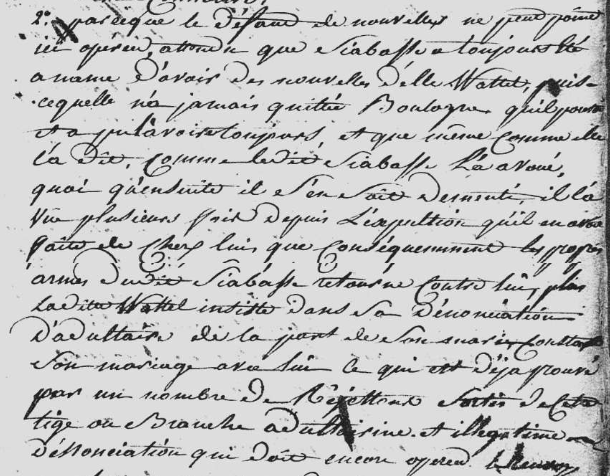 2° parceque le défaut de nouvelles ne peut point
ici opérer, attendu que Siabasse a toujours été
a name d'avoir des nouvelles d'elle Wattel, puis-
cequelle n'a jamais quittée Boulogne, qu'il pouvoit
et a pu la voir toujours, et que même comme elle
l'a dit, comme ledit Siabasse l'a avoué,
quoi qu'ensuite il s'en soit démenti, il l'a
vue plusieurs fois depuis l'expultion qu'il en avoit
faite de chez lui, que conséquemment les propres
armes dudit Siabasse retourne contre lui, plus
ladite Wattel insiste dans sa dénonciation
d'adultaire de la part de son mari
son mariage avec lui ce qui est déja prouvé
par un nombre de Rejettons sortis de cette
tige ou Branche adultérine et illegitime
dénonciation qui doit encore opérer